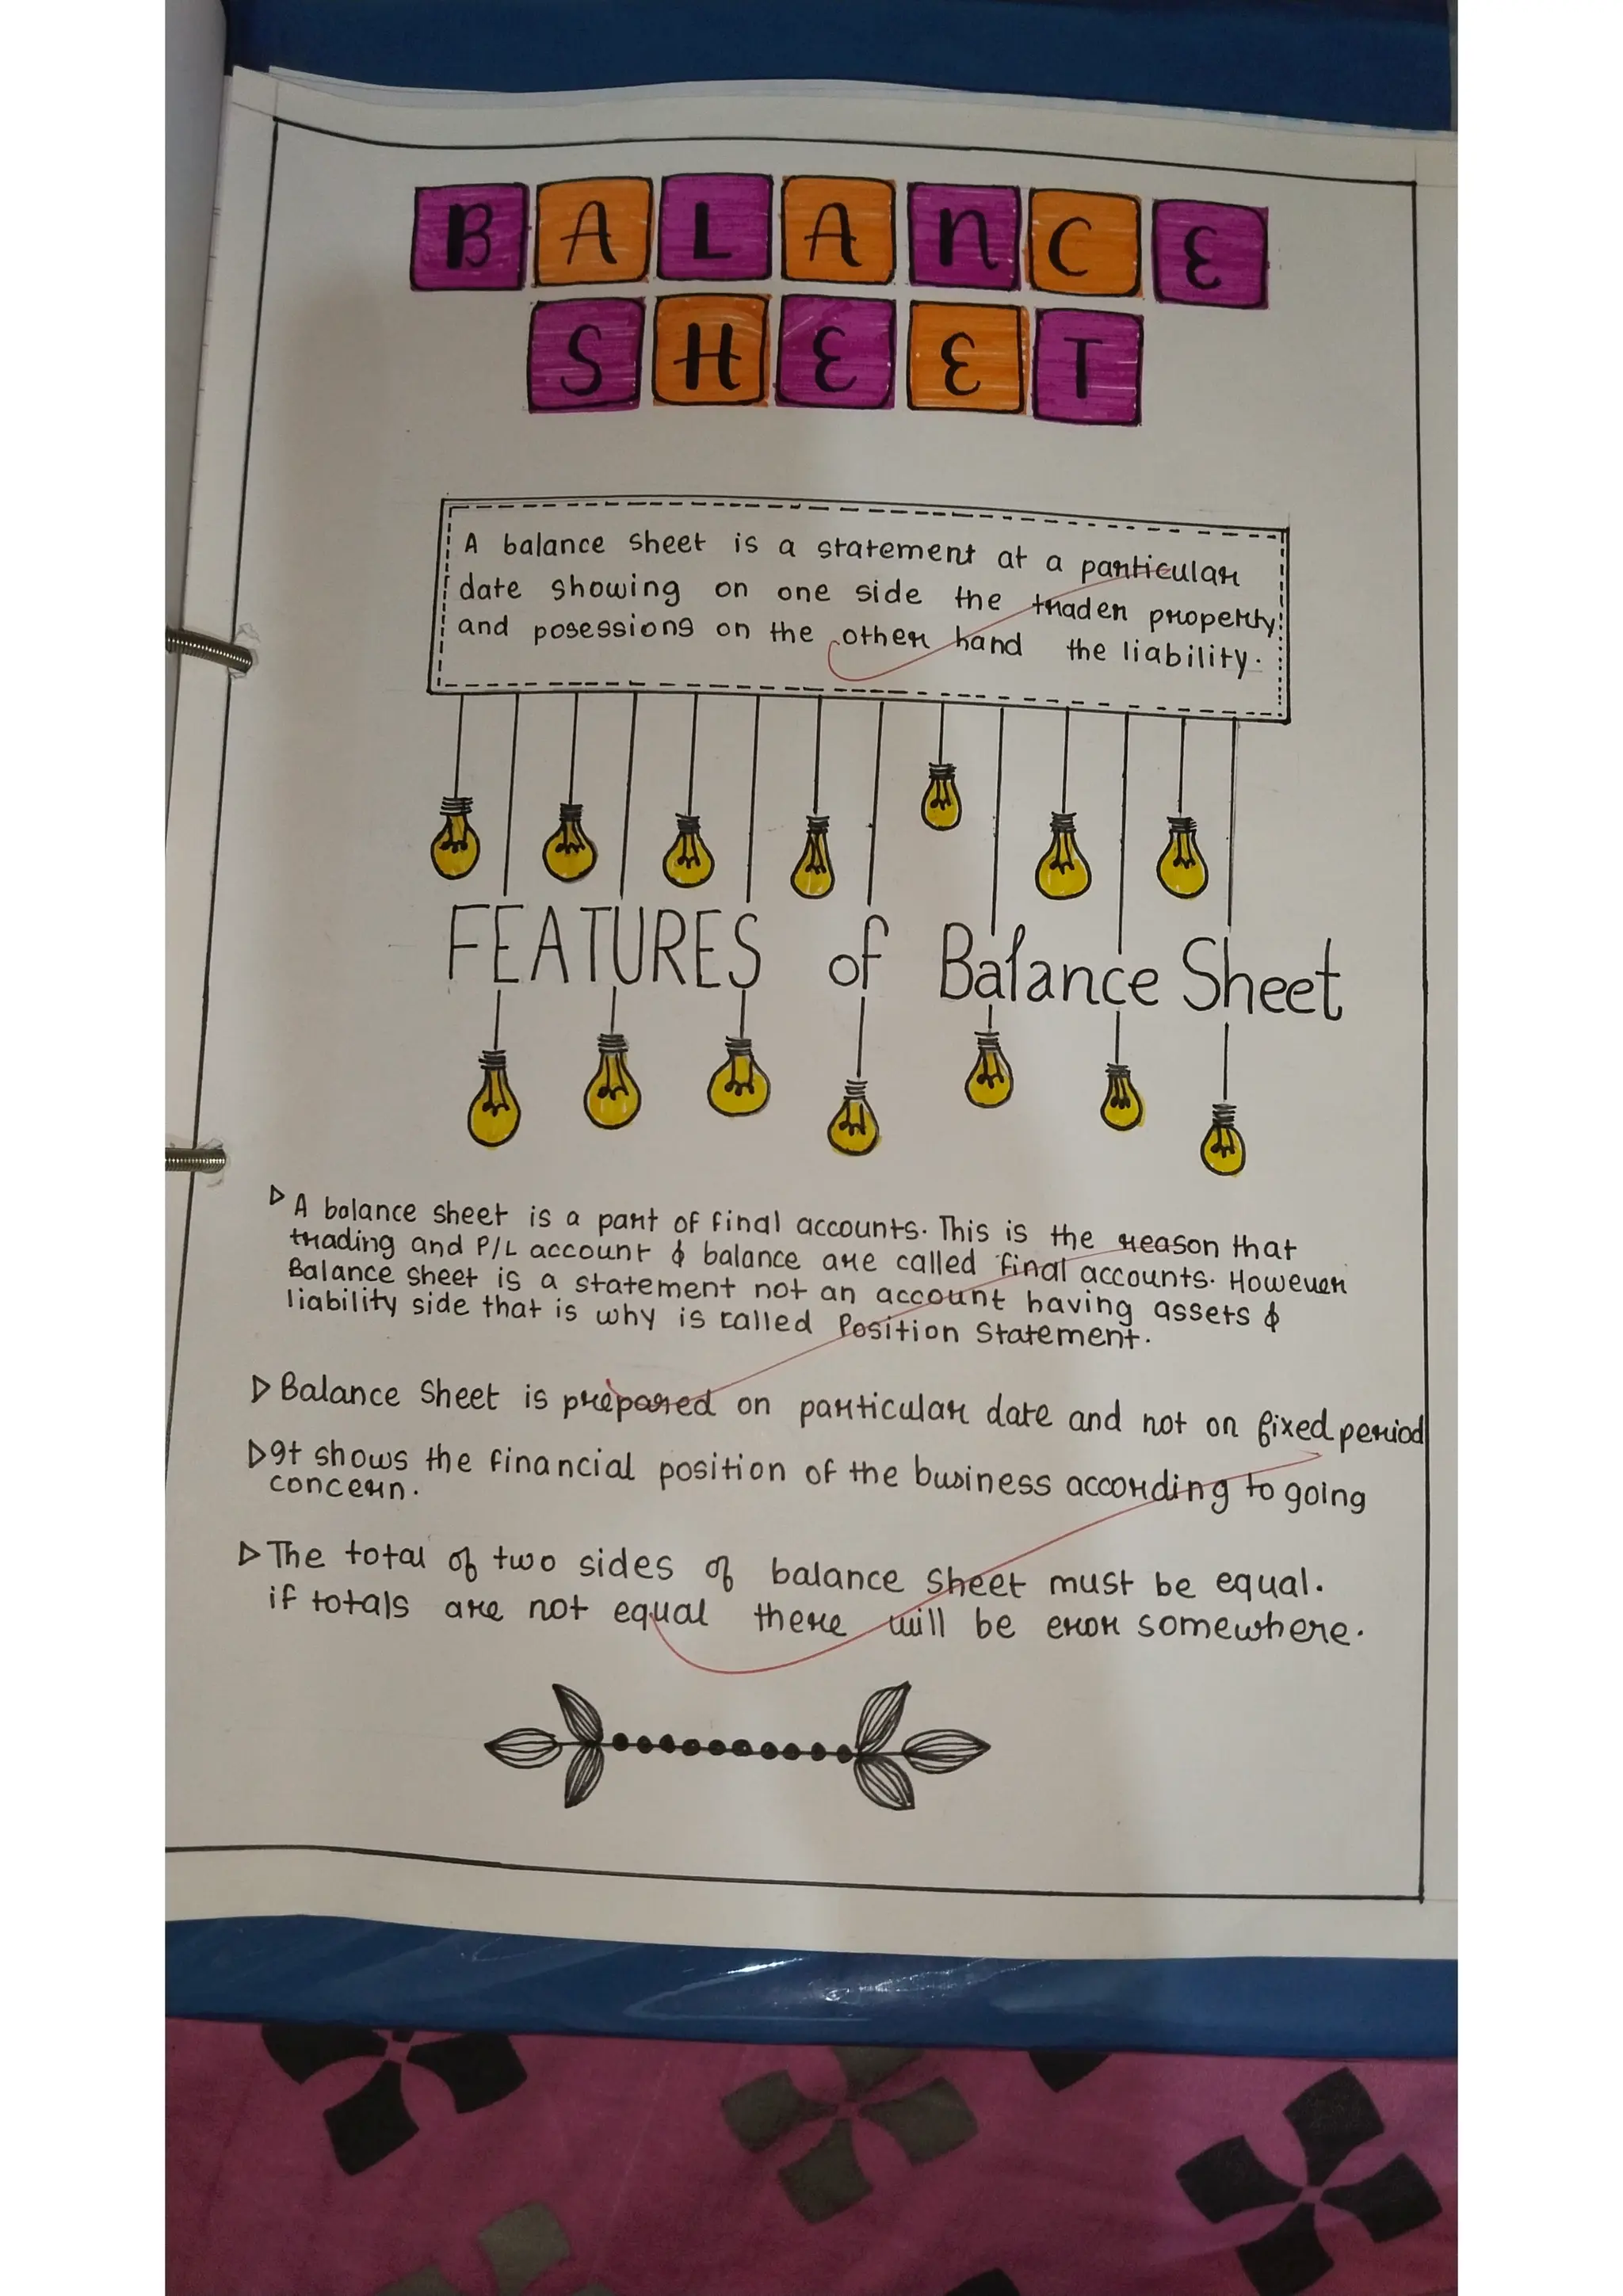 BALANCE
SHEET
A balance sheet is a statement at a particular
date showing on one side the trader property
and posessions on the other hand the liability.
FEATURES of Balance Sheet
▷ A balance sheet is a part of final accounts. This is the reason that
trading and P/L account & balance are called final accounts. However
Balance sheet is a statement not an account having assets &
liability side that is why is called Position Statement.
▷ Balance Sheet is prepared on particular date and not on fixed period
▷ It shows the financial position of the business according to going
concern.
▷ The total of two sides of balance sheet must be equal.
if totals are not equal there will be error somewhere.